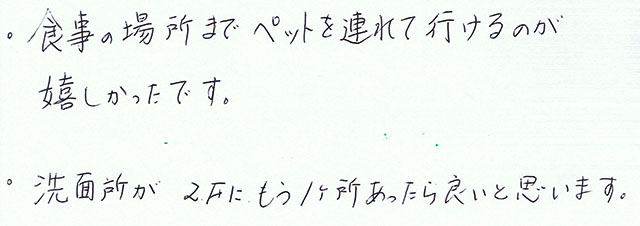 。食事の場所までペットを連れて行けるのが
嬉しかったです。
。洗面所が 2Fに もう1ヶ所あったら良いと思います。